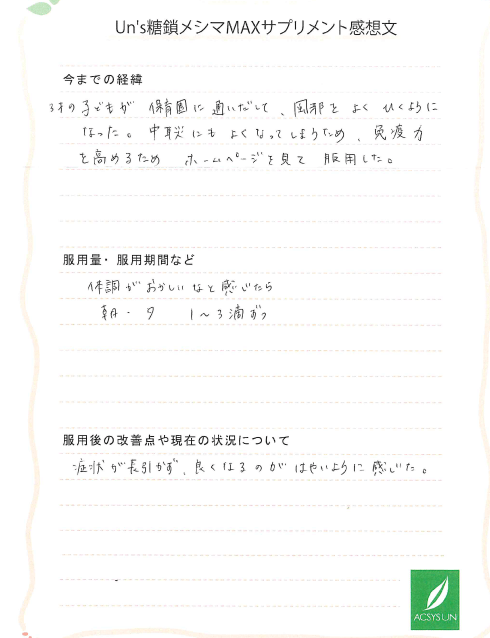 Un's糖鎖メシマMAXサプリメント感想文
今までの経緯
3才の子どもが 保育園に通いだして、風邪をよくひくように
なった。中耳炎にもよくなってしまうため、免疫力
を高めるため ホームページを見て 服用した。
服用量・服用期間など
体調がおかしいなと感じたら
朝・夕 1～3滴ずつ
服用後の改善点や現在の状況について
症状が長引かず、良くなるのがはやいように感じた。
ACSYSUN